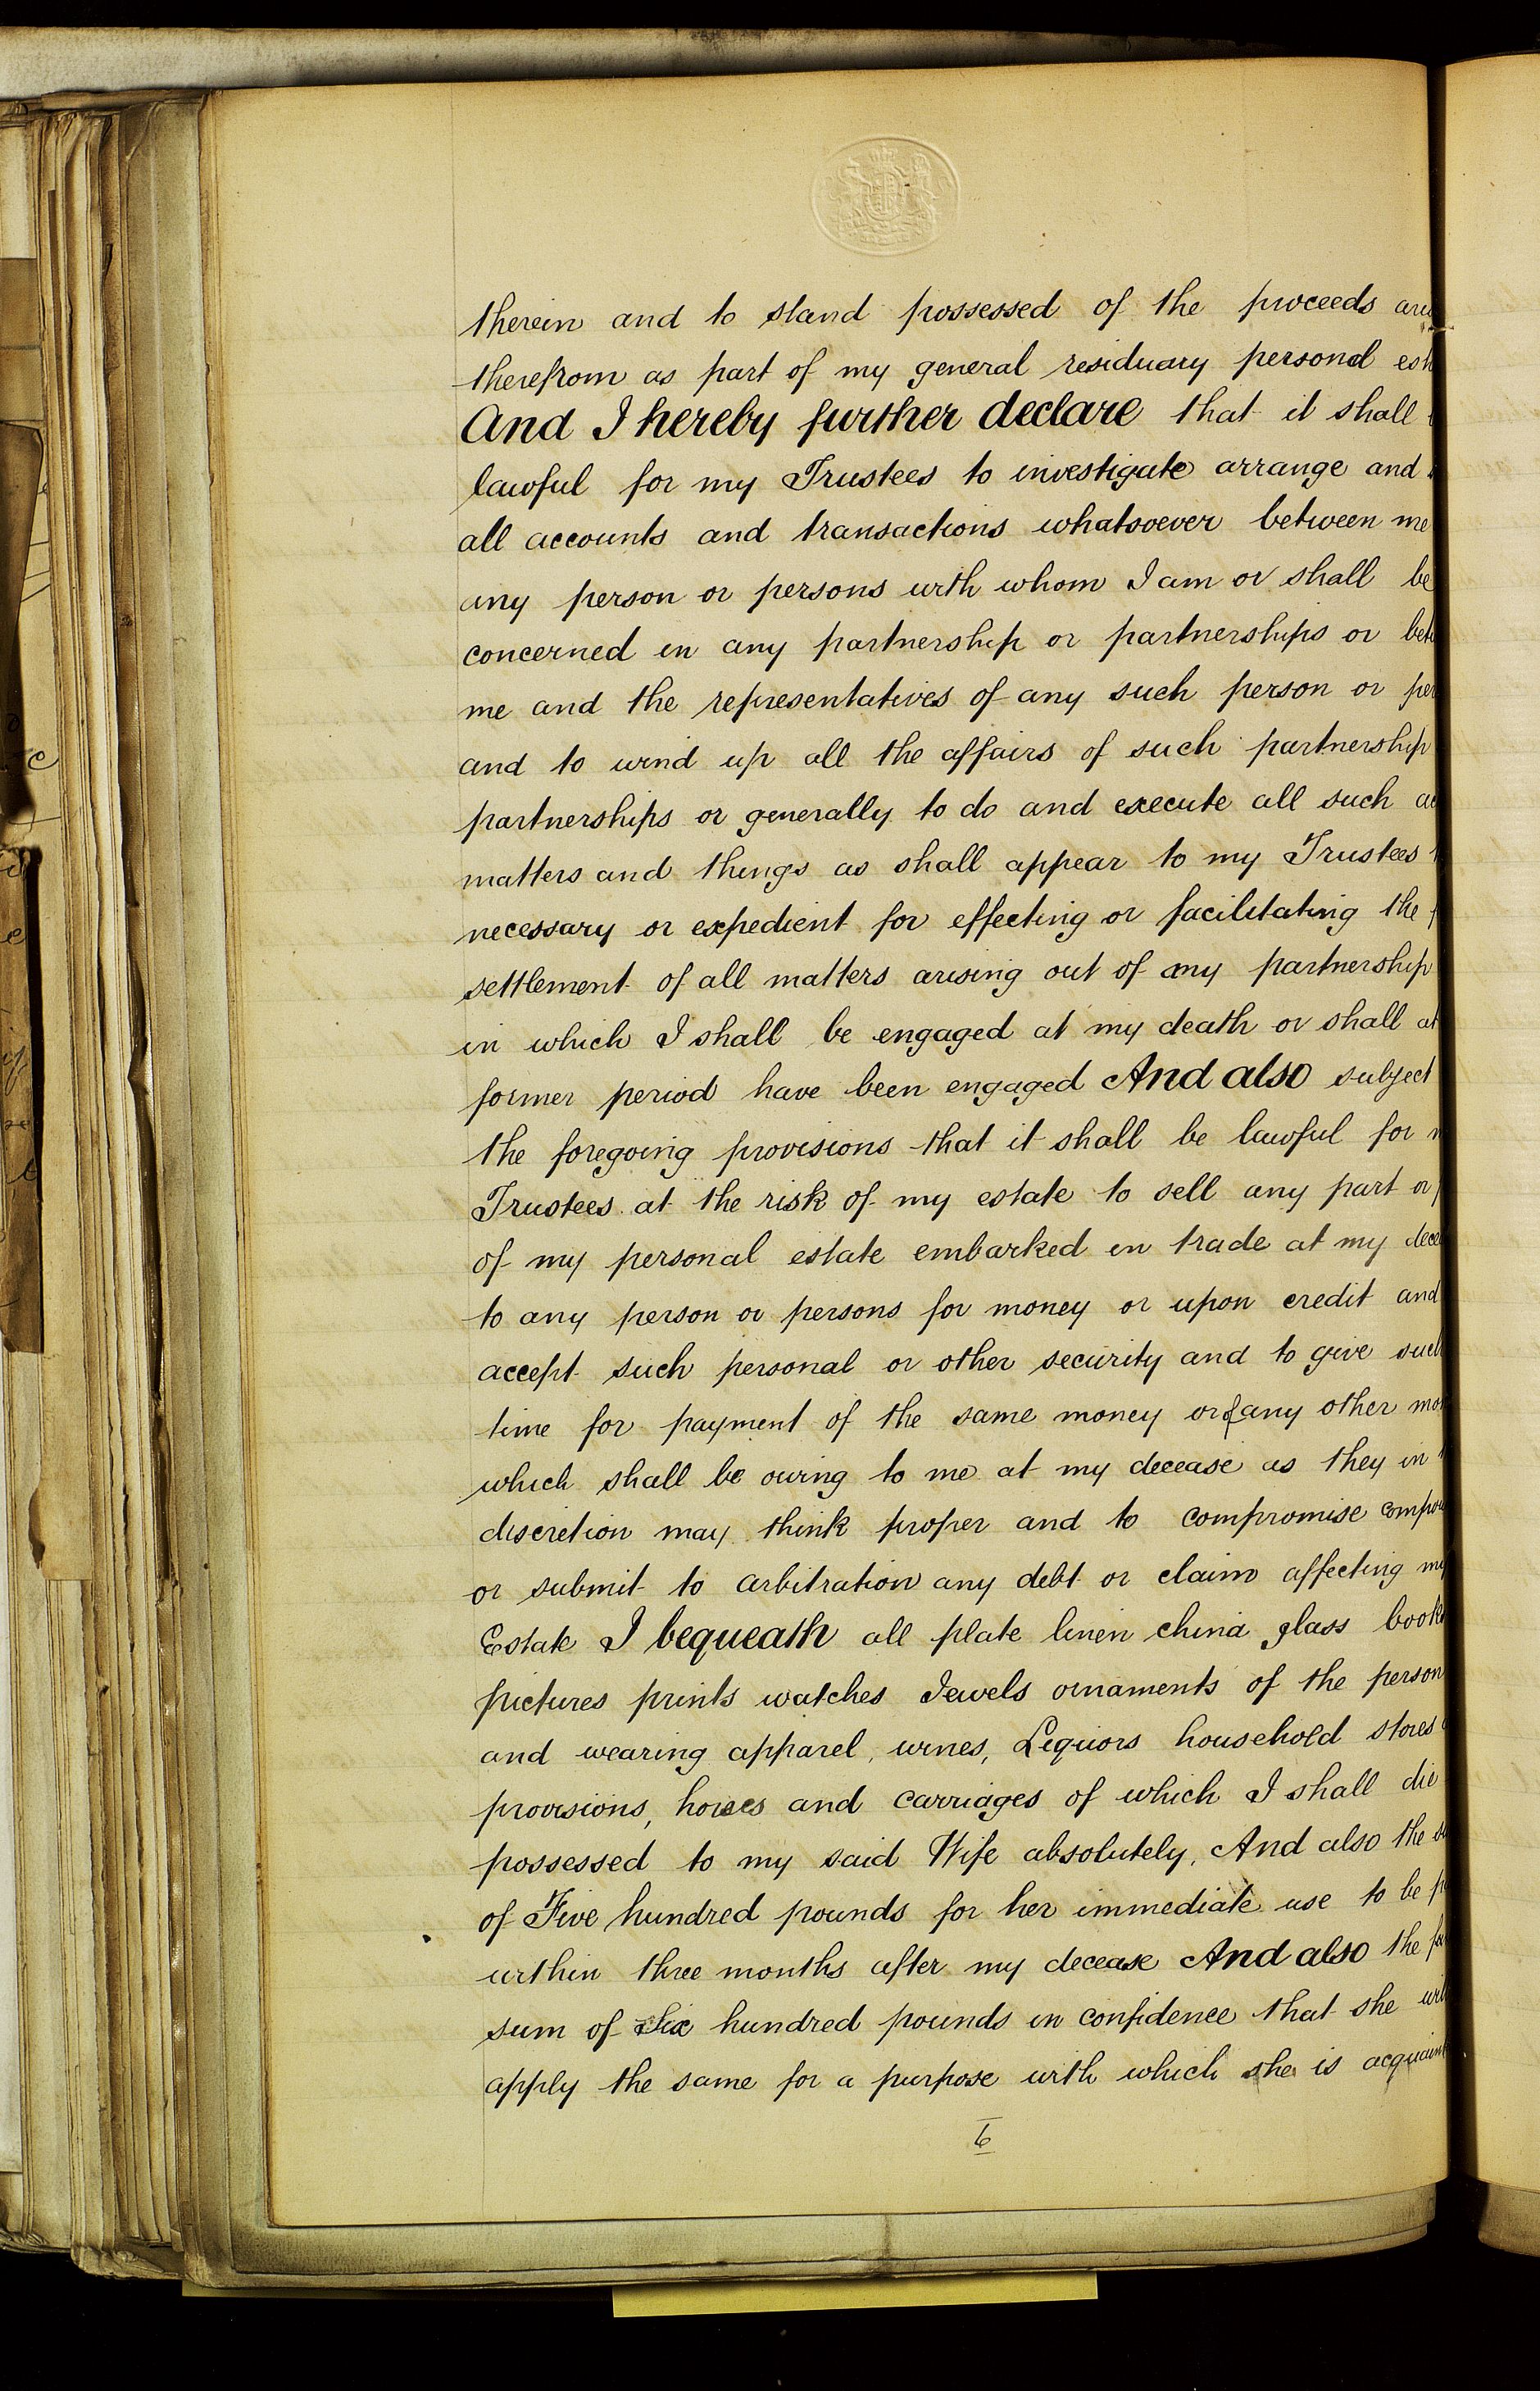 therein and to stand possessed of the proceeds
therefrom as part of my general residuary personal
And I hereby further declare that it shall
lawful for my Trustees to investigate arrange and
all accounts and transactions whatsoever between me
any person or persons with whom I am or shall be
concerned in any partnership or partnerships or
me and the representatives of any such person or
and to wind up all the affairs of such partnership
partnerships or generally to do and execute all such
matters and things as shall appear to my Trustees
necessary or expedient for effecting or facilitating the
settlement of all matters arising out of any partnership
in which I shall be engaged at my death or shall at
former period have been engaged And also subject
the foregoing provisions that it shall be lawful for
Trustees at the risk of my estate to sell any part or
of my personal estate embarked in trade at my
to any person or persons for money or upon credit and
accept such personal or other security and to give such
time for payment of the same money or of any other
which shall be owing to me at my decease as they in
discretion may think proper and to compromise
or submit to arbitration any debt or claim affecting my
Estate I bequeath all plate linen china glass books
pictures prints watches Jewels ornaments of the person
and wearing apparel, wines, Liquors household stores
provisions, horses and carriages of which I shall die
possessed to my said Wife absolutely, And also the
of Five hundred pounds for her immediate use to be
within three months after my decease And also the
sum of Six hundred pounds in confidence that she will
apply the same for a purpose with which she is
6